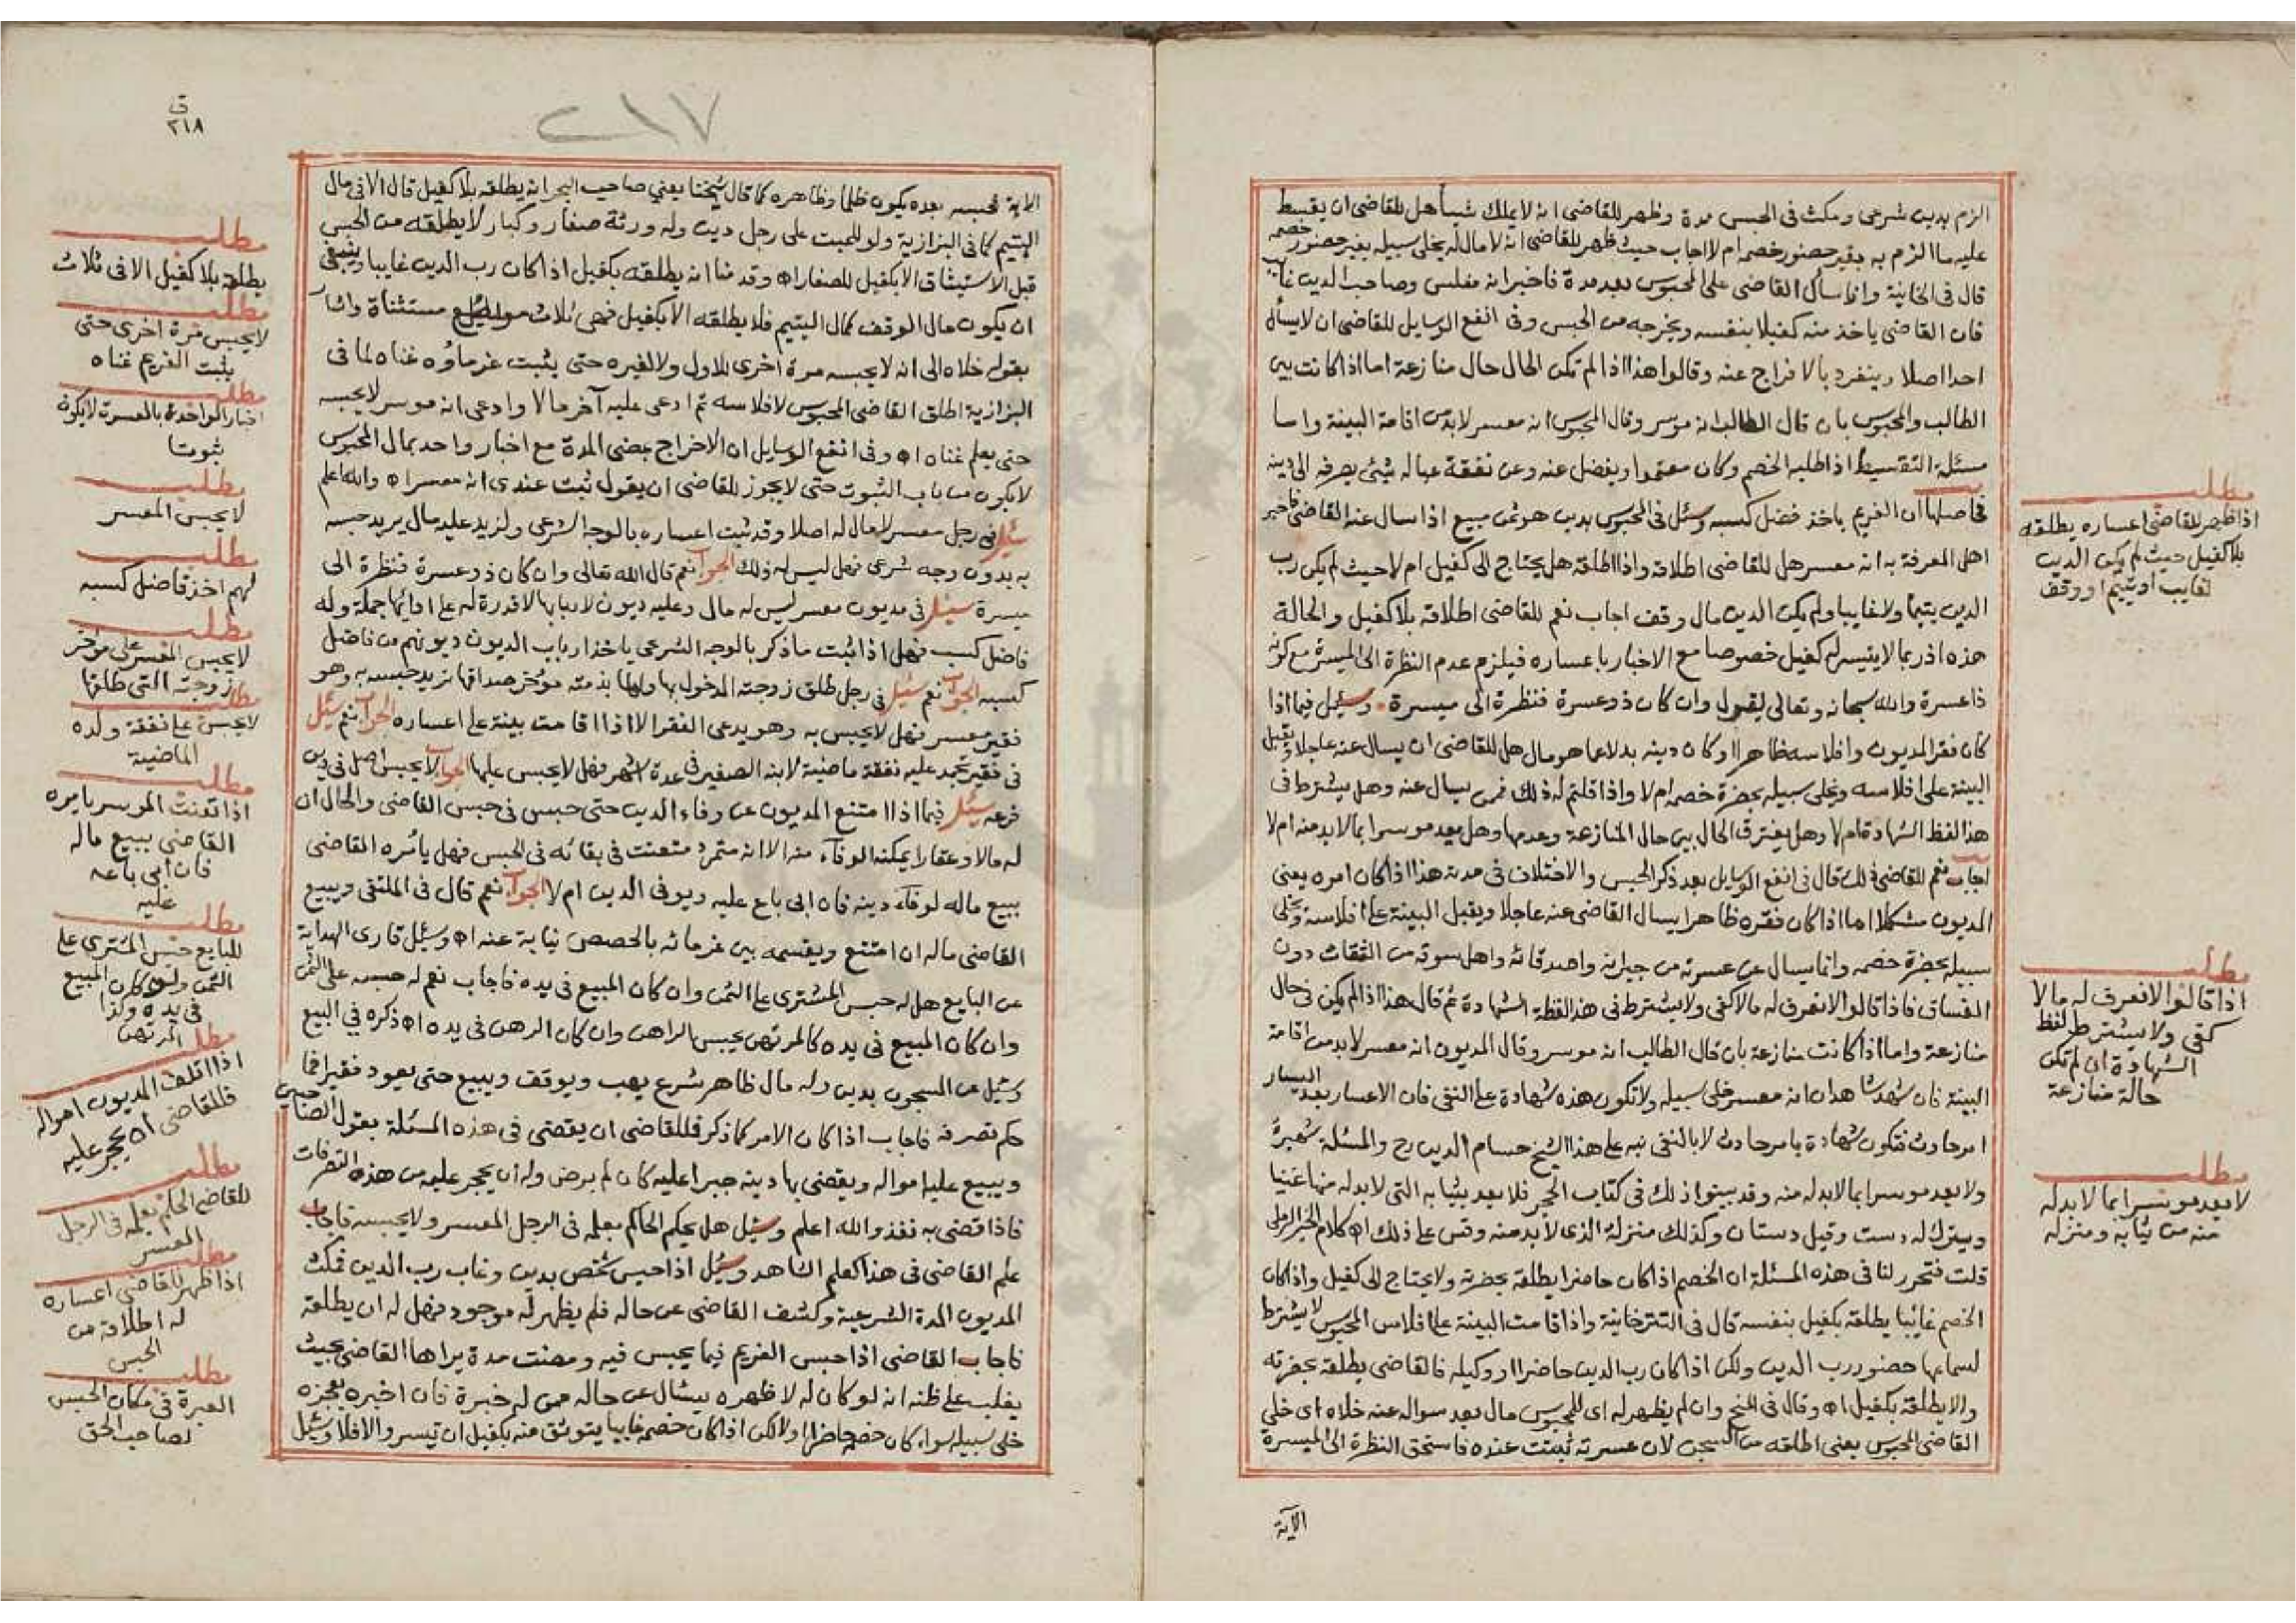 الزم بدين شرعى ومكث فى الحبس مدة وظهر للقاضى انه لا يملك شيأ هل للقاضى ان يقسط
عليه ما الزم به بغير حضور خصمه ام لا اجاب حيث ظهر للقاضى انه لا مال له يخلى سبيله بغير حضور خصمه
قال فى الخانية واذا سأل القاضى على المحبوس بعد مدة فاخبر انه مفلس وصاحب الدين غايب
فان القاضى ياخذ منه كفيلا بنفسه ويخرجه من الحبس وفى انفع الوسايل للقاضى ان لا يسأل
احدا اصلا وينفرد بالافراج عنه وقالوا هذا اذا لم تكن الحال حال منازعة اما اذا كانت بين
الطالب والمحبوس بان قال الطالب انه موسر وقال المحبوس انه معسر لابد من اقامة البينة واما
مسئلة التقسيط اذا طلبه الخصم وكان معتملا ويفضل عنه وعن نفقة عياله شيئ يصرفه الى دينه
فاصلها ان الغريم ياخذ فضل كسبه وسئل فى المحبوس بدين هو ثمن مبيع اذا سال عنه القاضى فاخبر
اهل المعرفة به انه معسر هل للقاضى اطلاقه واذا اطلقه هل يحتاج الى كفيل ام لا حيث لم يكن رب
الدين يتيما ولا غايبا ولم يكن الدين مال وقف اجاب نعم للقاضى اطلاقه بلا كفيل والحالة
هذه اذ ربما لا يتيسر له كفيل خصوصا مع الاخبار باعساره فيلزم عدم النظرة الى الميسرة مع كونه
ذا عسرة والله سبحانه وتعالى يقول وان كان ذو عسرة فنظرة الى ميسرة وسئل فيما اذا
كان فقر المديون وافلاسه ظاهرا وكان دينه بدلا عما هو مال هل للقاضى ان يسال عنه عاجلا ويقبل
البينة على افلاسه ويخلى سبيله بحضرة خصمه ام لا واذا قلتم له ذلك فمن يسال عنه وهل يشترط فى
هذا لفظ الشهادة ام لا وهل يفترق الحال بين حال المنازعة وعدمها وهل يعد موسرا بما لابد منه ام لا
اجاب نعم للقاضى ذلك قال فى انفع الوسايل بعد ذكر الحبس والاختلاف فى مدته هذا اذا كان امره يعنى
المديون مشكلا اما اذا كان فقره ظاهرا يسال القاضى عنه عاجلا ويقبل البينة على افلاسه ويخلى
سبيله بحضرة خصمه وانما يسال عن عسرته من جيرانه واصدقائه واهل سوقه من الثقات دون
الفساق فاذا قالوا لا نعرف له مالا كفى ولا يشترط فى هذا لفظة الشهادة ثم قال هذا اذا لم يكن فى حال
منازعة واما اذا كانت منازعة بان قال الطالب انه موسر وقال المديون انه معسر لابد من اقامة
البينة فان شهد شاهدان انه معسر خلى سبيله ولا تكون هذه شهادة على النفى فان الاعسار بعد اليسار
امر حادث فتكون شهادة بامر حادث لا بالنفى نبه على هذا الشيخ حسام الدين رح والمسئلة شهيرة
ولا يعد موسرا بما لابد له منه وقد بينوا ذلك فى كتاب الحجر فلا يعد بثيابه التى لابد له منها غنيا
ويترك له دست وقيل دستان وكذلك منزله الذى لابد منه وقس على ذلك اه كلام الخير الرملى
قلت فتحرر لنا فى هذه المسئلة ان الخصم اذا كان حاضرا يطلقه بحضرته ولا يحتاج الى كفيل واذا كان
الخصم غايبا يطلقه بكفيل بنفسه قال فى التترخانية واذا قامت البينة على افلاس المحبوس لا يشترط
لسماعها حضور رب الدين ولكن اذا كان رب الدين حاضرا او وكيله فالقاضى يطلقه بحضرته
والا يطلقه بكفيل اه وقال فى المنح وان لم يظهر له اى للمحبوس مال بعد سواله عنه خلاه اى خلى
القاضى المحبوس يعنى اطلقه من السجن لان عسرته ثبتت عنده فاستحق النظرة الى الميسرة
الآية
مطلب
اذا ظهر للقاضى اعساره يطلقه
بلا كفيل حيث لم يكن الدين
لغايب او يتيم او وقف
مطلب
اذا قالوا لا نعرف له مالا
كفى ولا يشترط لفظ
الشهادة ان لم تكن
حالة منازعة
مطلب
لا يعد موسرا بما لابد له
منه من ثيابه ومنزله
٢١٧
ق
٢١٨
الاية فحبسه بعده يكون ظلما وظاهره كما قال شيخنا يعنى صاحب البحر انه يطلقه بلا كفيل قال الا فى مال
اليتيم كما فى البزازية ولو للميت على رجل دين وله ورثة صغار وكبار لا يطلقه من الحبس
قبل الاستيثاق الا بكفيل للصغار اه وقدمنا انه يطلقه بكفيل اذا كان رب الدين غايبا وينبغى
ان يكون مال الوقف كمال اليتيم فلا يطلقه الا بكفيل فهى ثلاث مواضع مستثناة واشار
بقوله خلاه الى انه لا يحبسه مرة اخرى للاول ولا لغيره حتى يثبت غرماؤه غناه لما فى
البزازية اطلق القاضى المحبوس لافلاسه ثم ادعى عليه آخر مالا وادعى انه موسر لا يحبسه
حتى يعلم غناه اه وفى انفع الوسايل ان الاخراج بمضى المدة مع اخبار واحد بحال المحبوس
لا يكون من باب الثبوت حتى لا يجوز للقاضى ان يقول ثبت عندى انه معسر اه والله اعلم
سئل فى رجل معسر لا مال له اصلا وقد ثبت اعساره بالوجه الشرعى ولزيد عليه مال يريد حبسه
به بدون وجه شرعى فهل ليس له ذلك الجواب نعم قال الله تعالى وان كان ذو عسرة فنظرة الى
ميسرة سئل فى مديون معسر ليس له مال وعليه ديون لاربابها لا قدرة له على ادائها جملة وله
فاضل كسب فهل اذا ثبت ما ذكر بالوجه الشرعى ياخذ ارباب الديون ديونهم من فاضل
كسبه الجواب نعم سئل فى رجل طلق زوجته المدخول بها ولها بذمته مؤخر صداقها تريد حبسه به وهو
فقير معسر فهل لا يحبس به وهو يدعى الفقر الا اذا اقامت بينة على اعساره الجواب نعم سئل
فى فقير تجمد عليه نفقة ماضية لابنه الصغير فى عدة اشهر فهل لا يحبس عليها الجواب لا يحبس اصل فى دين
فرعه سئل فيما اذا امتنع المديون عن وفاء الدين حتى حبس فى حبس القاضى والحال ان
له مالا وعقارا يمكنه الوفاء منه الا انه متمرد متعنت فى بقائه فى الحبس فهل يأمره القاضى
ببيع ماله لوفاء دينه فان ابى باع عليه ويوفى الدين ام لا الجواب نعم قال فى الملتقى ويبيع
القاضى ماله ان امتنع ويقسمه بين غرمائه بالحصص نيابة عنه اه وسئل قارى الهداية
عن البايع هل له حبس المشترى على الثمن وان كان المبيع فى يده فاجاب نعم له حبسه على الثمن
وان كان المبيع فى يده كالمرتهن يحبس الراهن وان كان الرهن فى يده اه ذكره فى البيع
وسئل عن المسجون بدين وله مال ظاهر شرع يهب ويوقف ويبيع حتى يعود فقيرا فما
حكم تصرفه فاجاب اذا كان الامر كما ذكر فللقاضى ان يقضى فى هذه المسئلة بقول الصاحبين
ويبيع عليه امواله ويقضى بها دينه جبرا عليه كان لم يرض وله ان يحجر عليه من هذه التصرفات
فاذا قضى به نفذ والله اعلم وسئل هل يحكم الحاكم بعلمه فى الرجل المعسر ولا يحبسه فاجاب
علم القاضى فى هذا كعلم الشاهد وسئل اذا حبس شخص بدين وغاب رب الدين فمكث
المديون المدة الشرعية وكشف القاضى عن حاله فلم يظهر له موجود فهل له ان يطلقه
فاجاب القاضى اذا حبس الغريم فيما يحبس فيه ومضت مدة يراها القاضى بحيث
يغلب على ظنه انه لو كان له لاظهره يسئال عن حاله ممن له خبرة فان اخبره بعجزه
خلى سبيله سواء كان خصمه حاضرا اولا لكن اذا كان خصمه غايبا يتوثق منه بكفيل ان تيسر والا فلا وسئل
مطلب
يطلقه بلا كفيل الا فى ثلاث
مطلب
لا يحبس مرة اخرى حتى
يثبت الغريم غناه
مطلب
اخبار الواحدة بالعسرة لا يكون
ثبوتا
مطلب
لا يحبس المعسر
مطلب
لهم اخذ فاضل كسبه
مطلب
لا يحبس المعسر على مؤخر
زوجته التى طلقها
مطلب
لا يحبس على نفقة ولده
الماضية
مطلب
اذا تعنت الموسر يامره
القاضى ببيع ماله
فان ابى باعه
عليه
مطلب
للبايع حبس المشترى على
الثمن ولو كان المبيع
فى يده وكذا
المرتهن
مطلب
اذا اتلف المديون امواله
فللقاضى ان يحجر عليه
مطلب
للقاضى الحكم بعلمه فى الرجل
المعسر
مطلب
اذا ظهر للقاضى اعساره
له اطلاقه من
الحبس
مطلب
العبرة فى مكان الحبس
لصاحب الحق